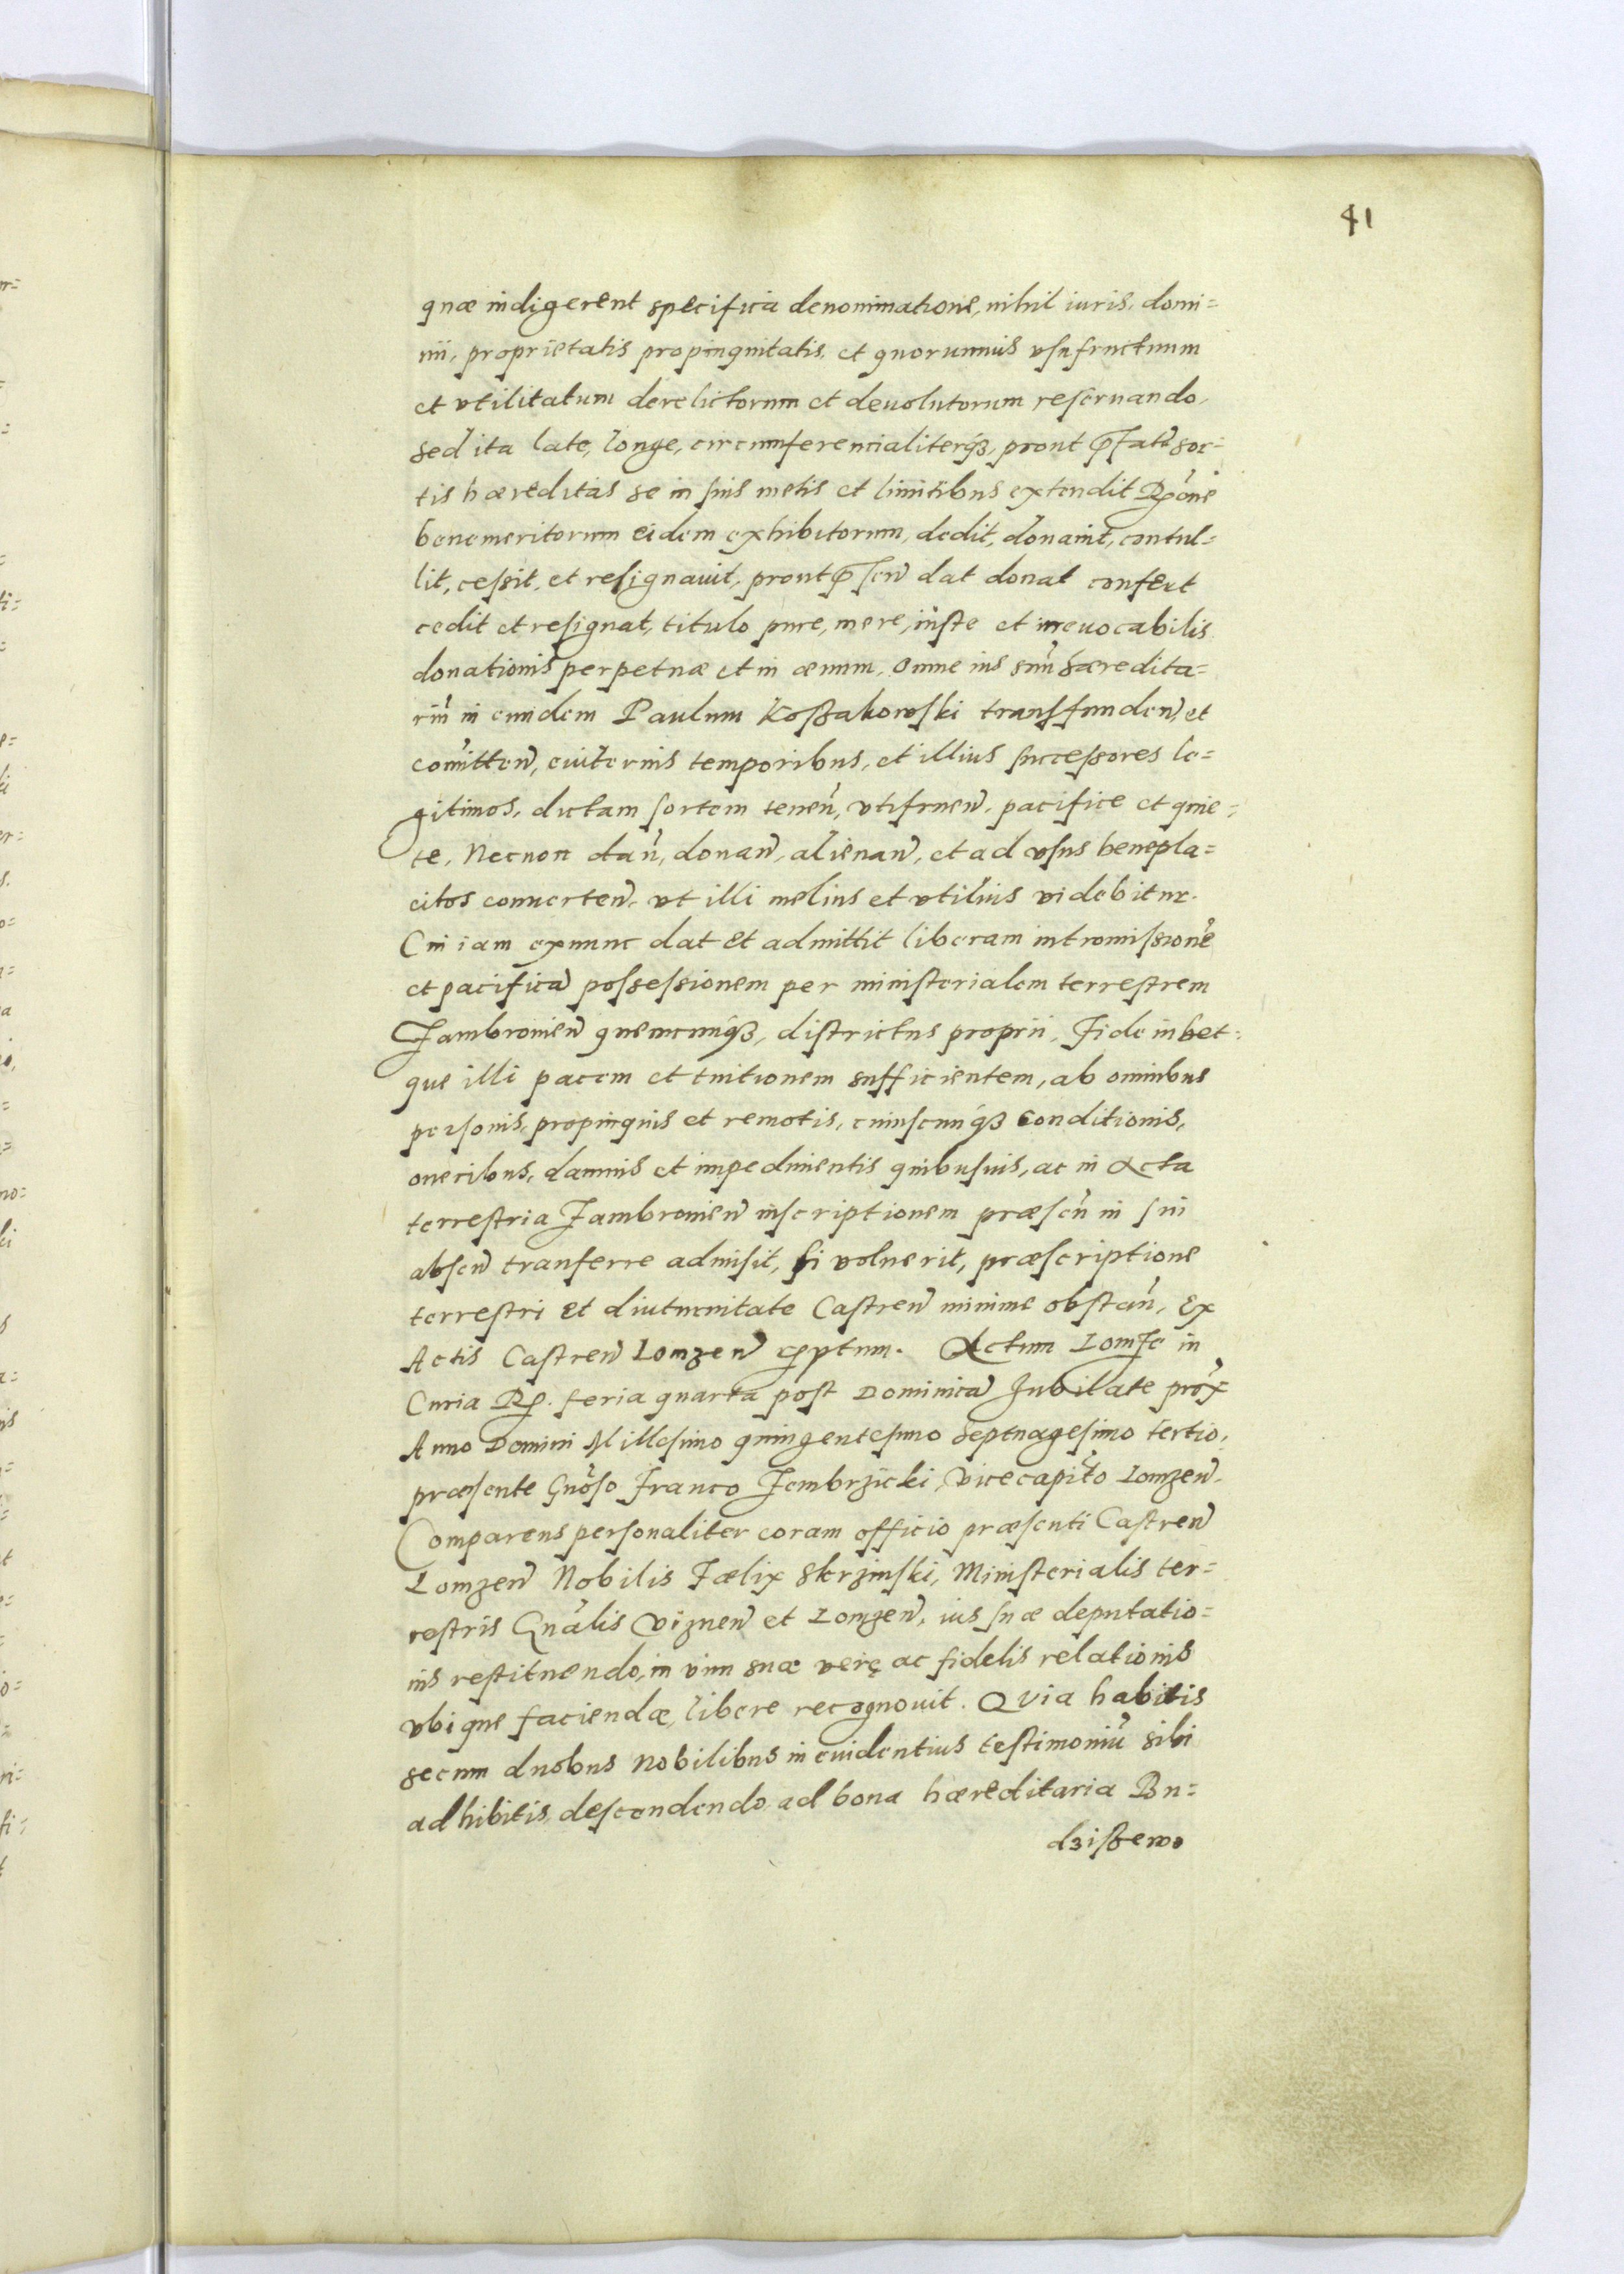 41
quæ indigerent specifica denominatione, nihil iuris, domi=
nii, proprietatis propinquitatis, et quorumuis vsufructuum
et vtilitatum derelictorum et deuolutorum reseruando,
sed ita late, longe, circumferencialiterq̃ȝ, prout p̃fatę sor=
tis hæreditas se in suis metis et limitibus extendit Rõne
benemeritorum eidem exhibitorum, dedit, donauit, contul=
lit, cessit, et resignauit, prout p̃sen̄ dat donat confert
cedit et resignat, titulo pure, mere, iuste et irreuocabilis
donationis perpetuæ et in æuum, omne ius suũ hæredita=
riũ in eundem Paulum Kossakowski transfunden̄, et
com̃itten̄, euiternis temporibus, et illius successores le=
gitimos, dictam sortem tenen̄, vtifruen̄, pacifice et quie=
te, Necnon dan̄, donan̄, alienan̄, et ad vsus benepla=
citos conuerten̄, vt illi melius et vtilius videbitur.
Cui iam exnunc dat et admittit liberam intromissionẽ
et pacificã possessionem per ministerialem terrestrem
Zambrouien̄ quemcunq̃ȝ, districtus proprii, Fide iubet=
que illi pacem et tuitionem sufficientem, ab omnibus
personis, propinquis et remotis, cuiuscunq̃ȝ conditionis,
oneribus, damnis et impedimentis quibusuis, ac in Acta
terrestria Zambrouien̄ inscriptionem præsen̄ in sui
absen̄ tranferre admisit, si voluerit, præscriptione
terrestri et diuturnitate Castren̄ minime obstan̄, Ex
Actis Castren̄ Lomzen̄ rẽptum. Actum Lomze in
Curia R̃. feria quarta post Dominicã Jubilate prõx
Anno Domini Millesimo quingentesimo septuagesimo tertio,
præsente Gnõso Franco Zembrzicki, Vicecapitõ Lomzen̄.
Comparens personaliter coram officio præsenti Castren̄
Lomzen̄ Nobilis Fælix Skrzinski, Ministerialis ter=
restris Gnãlis Viznen̄ et Lomzen̄, ius suæ deputatio=
nis restituendo, in vim suæ verę ac fidelis relationis
vbique faciendæ, libere recognouit. Quia habitis
secum duobus Nobilibus in euidentius testimoniũ sibi
adhibitis, descendendo ad bona hæreditaria Bu=
dzissewo